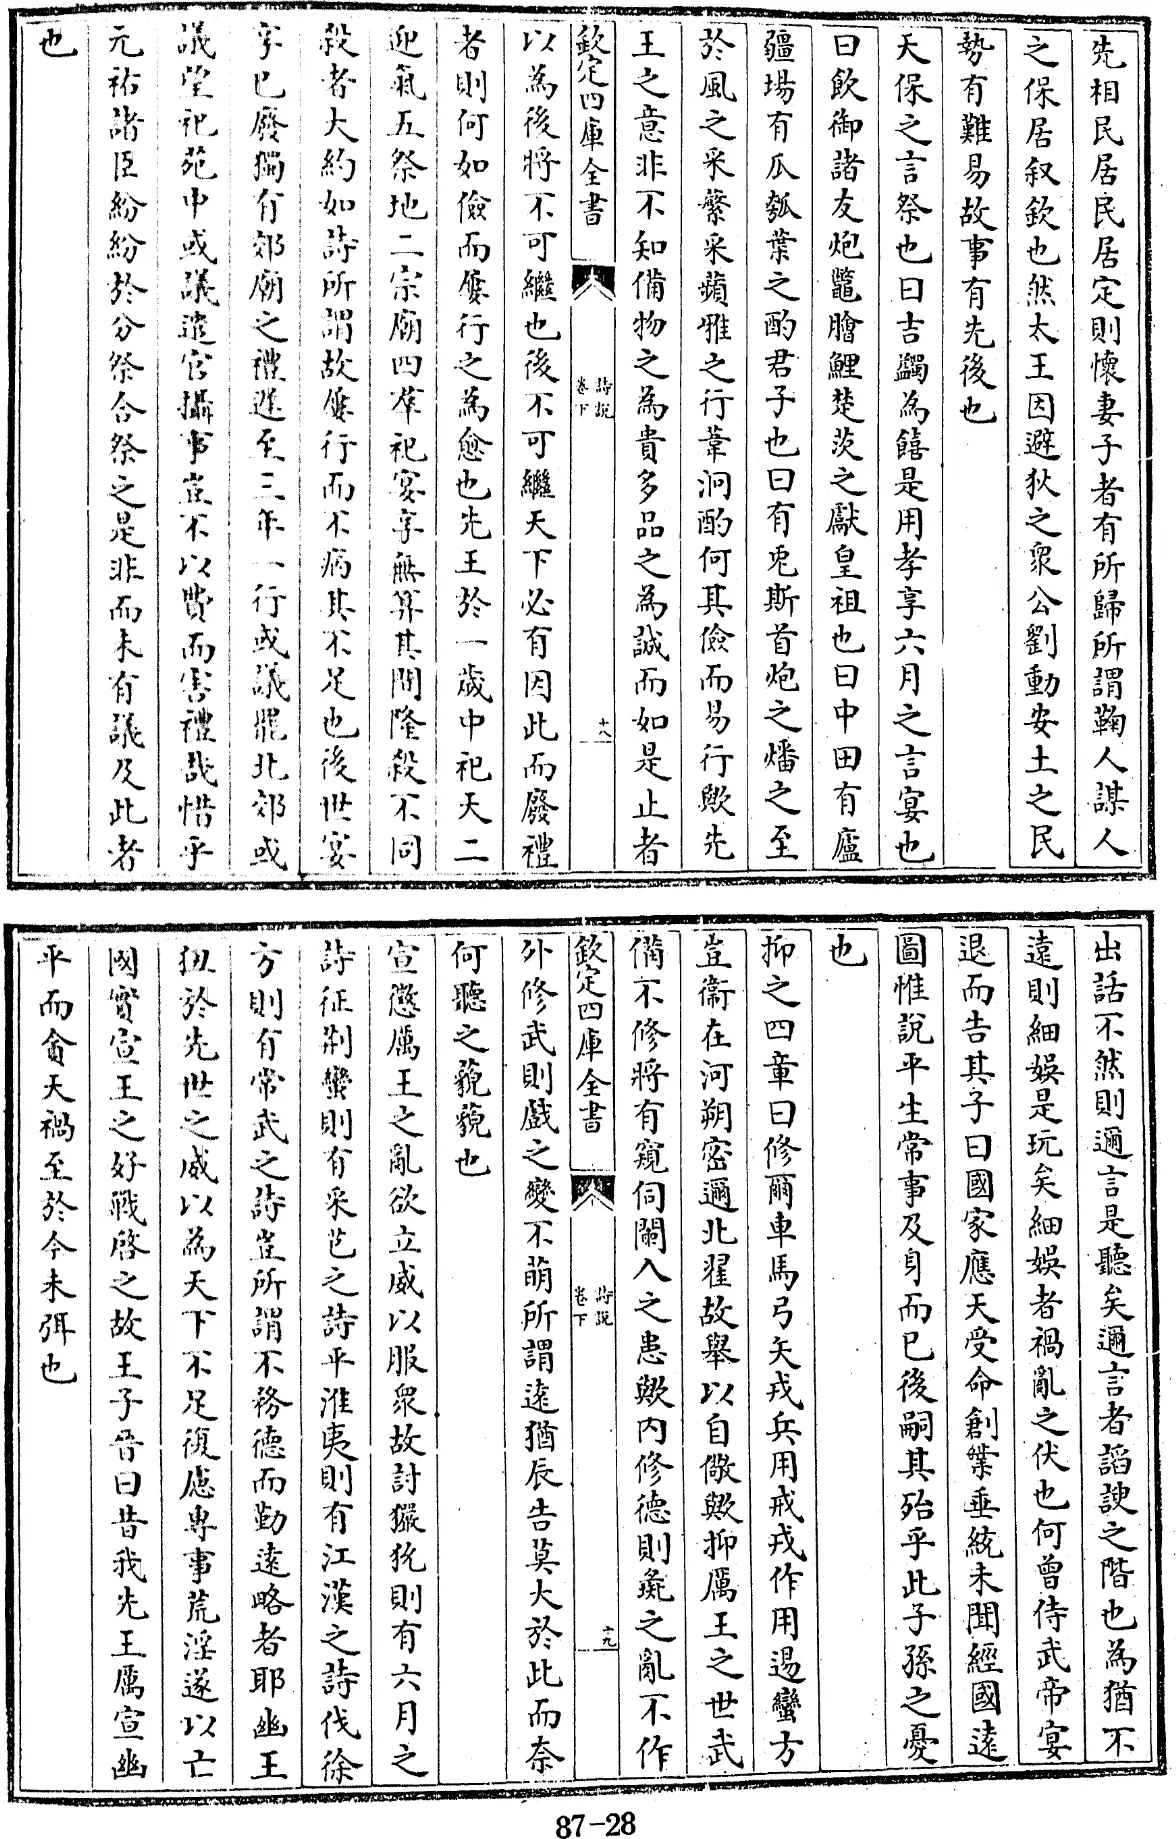 先相民居民居定則懷妻子者有所歸所謂鞠人謀人
之保居叙欽也然太王因避狄之衆公劉動安土之民
勢有難易故事有先後也
天保之言祭也曰吉蠲為饎是用孝享六月之言宴也
曰飲御諸友炰鼈膾鯉楚茨之獻皇祖也曰中田有廬
疆場有瓜瓠葉之酌君子也曰有兎斯首炮之燔之至
於風之采蘩采蘋雅之行葦泂酌何其儉而易行歟先
王之意非不知備物之為貴多品之為誠而如是止者
欽定四庫全書
詩說
卷下
十八
以為後將不可繼也後不可繼天下必有因此而廢禮
者則何如儉而屢行之為愈也先王於一歲中祀天二
迎氣五祭地二宗廟四羣祀宴享無算其間隆殺不同
殺者大約如詩所謂故屢行而不病其不足也後世宴
享已廢獨有郊廟之禮遲至三年一行或議罷北郊或
議望祀苑中或議遣官攝事豈不以費而害禮哉惜乎
元祐諸臣紛紛於分祭合祭之是非而未有議及此者
也
出話不然則邇言是聽矣邇言者謟諛之階也為猶不
遠則細娛是玩矣細娛者禍亂之伏也何曾侍武帝宴
退而告其子曰國家應天受命創業垂統未聞經國遠
圖惟說平生常事及身而已後嗣其殆乎此子孫之憂
也
抑之四章曰修爾車馬弓矢戎兵用戒戎作用逷蠻方
豈衞在河朔密邇北翟故舉以自儆歟抑厲王之世武
備不修將有窺伺闌入之患歟内修德則彘之亂不作
欽定四庫全書
詩說
卷下
十九
外修武則戲之變不萌所謂遠猶辰告莫大於此而奈
何聽之藐藐也
宣懲厲王之亂欲立威以服衆故討玁狁則有六月之
詩征荆蠻則有采芑之詩平淮夷則有江漢之詩伐徐
方則有常武之詩豈所謂不務德而勤遠略者耶幽王
狃於先世之威以為天下不足復慮專事荒淫遂以亡
國實宣王之好戰啓之故王子晉曰昔我先王厲宣幽
平而貪天禍至於今未弭也
87-28